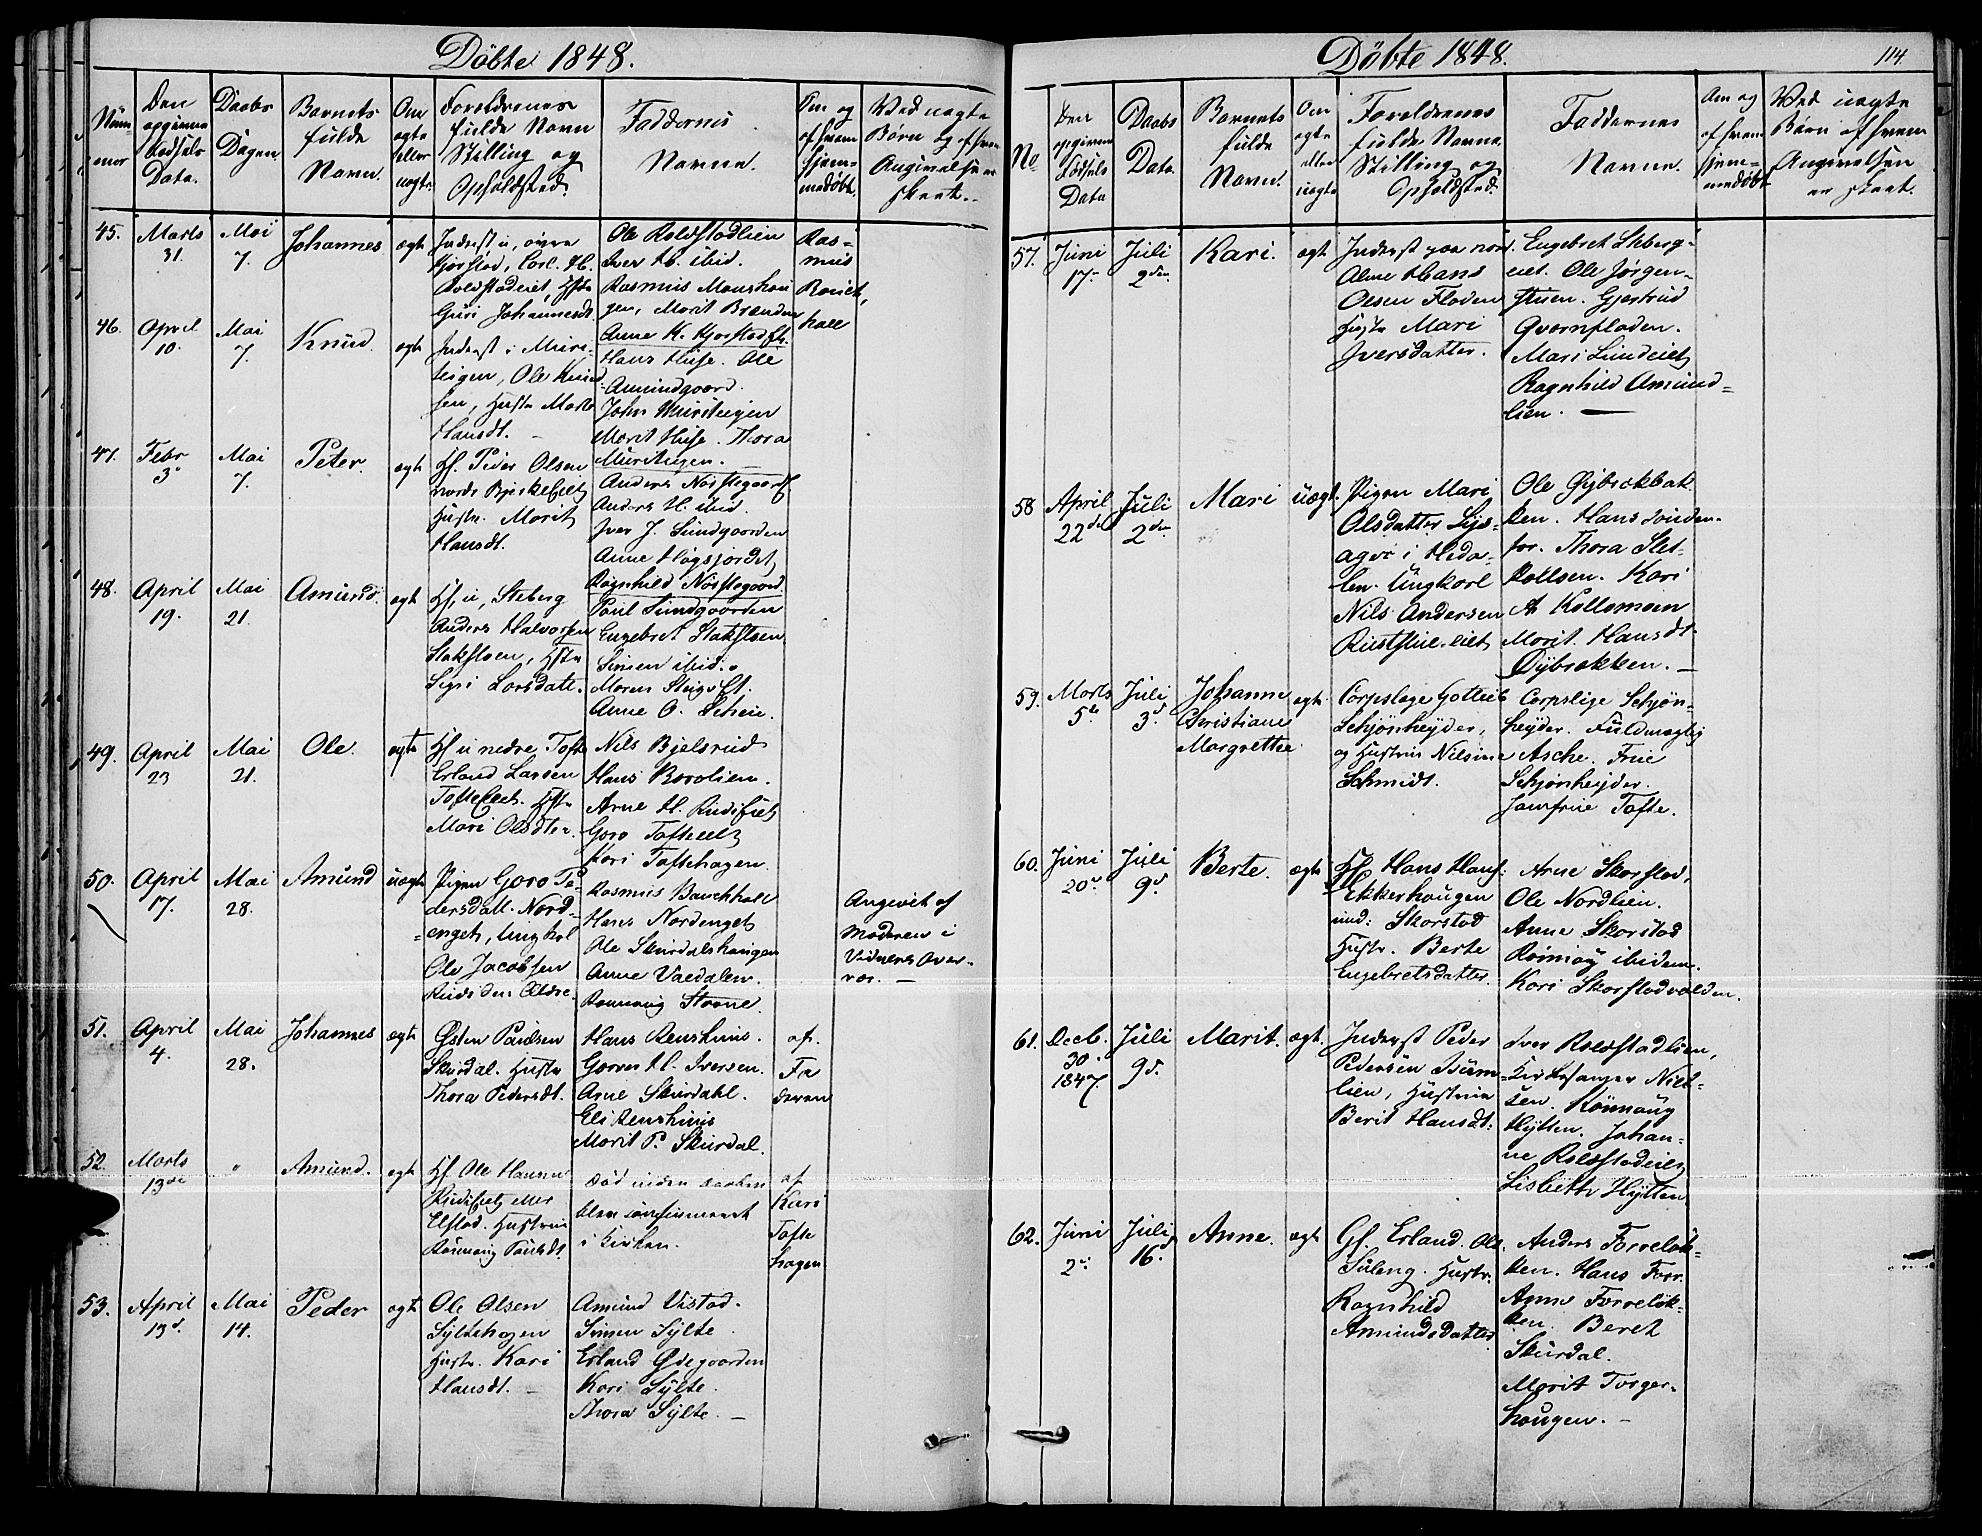 Döbte 1848.
Num-
mer
Den
opgivne
Fødsels
Data.
Daabs
Dagen
Barnets
fulde
Navn.
Om
ægte
eller
uægte
Forældrenes
fulde Navn
Stilling og
Opholdsted.
Faddernes
Navne.
Om og
af hvem
hjem-
medøbt.
Ved uægte
Børn og af hvem
Angivelsen er
skeet.
45.
Marts
31.
Mai
7.
Johannes
ægte
Guri Johannesdt.
Ole Rolvstadlien
Iver H. ibid.
Rasmus Monshou
gen, Marit Brenden
Anne K. Kjorstad
Ras-
mus
46.
April
10.
Mai
7.
Knud.
ægte
Inderst i Muri-
teigen, Ole Knud
sen, Hustr Marte
Hansdt. -
Hans Huse. Ole
Amundgaard.
John Muriteigen
Marit Huse. Thora
Muriteigen.
47.
Febr
3
Mai
7.
Peter.
ægte
Hf. Peder Olsen
Hustr. Marit
Hansdt.
Anders H. ibid.
Iver J. Sundgaarden
Anne Høgsjordet
Ragnhild Nostegaard
48.
April
19.
Mai
21.
Amund.
ægte
Hf, u, Steberg
Anders Halvorsen
Stakstoen, Hstr
Sigri Larsdatt.
Paul Sundgaarden
Engebret Stakstoen
Simen ibid.
Anne O.
49.
April
23
Mai
21.
Ole.
ægte
Hf u nedre Tofte
Erland Larsen
Mari Olsdtr.
Nils Bjelsrud
Hans Boroliен.
Goro Tofteeiet
Kari Toftehagen.
50.
April
17.
Mai
28.
Amund
uægte
Pigen Goro Pe-
dersdatt. Nord-
enget, Ungkarl
Ole Jacobsen
Rasmus Bauckhall
Hans Nordenget
Ole Skurdalshaugen
Anne Vaedalen.
Rønnaug Strone.
Angivet af
Moderen i
Vidners Over-
vær. -
51.
April
4.
Mai
28.
Johannes
ægte
Østen Paulsen
Skurdal. Hustr
Thora Pedersdt.
Hans Renshuus.
Gorren H. Iversen.
Arne Skurdahl.
Eli Renshuus
Marit P. Skurdal.
af.
Fa
deren
52.
Marts
13de
"
Amund.
ægte
Hf. Ole Hansen
Elstad. Hustru
Rønnaug Paulsdt.
død inden Daaben
blev confirmeret
i Kirken.
af
Kari
Tofte
hagen
53.
April
13d.
Mai
14.
Peder
ægte
Ole Olsen
Syltehagen
Hustr. Kari
Hansdt. -
Amund Vistad.
Simen Sylte.
Erland Ødegaarden
Kari Sylte.
Thora Sylte. -
Döbte 1848.
114.
No
Den
opgivne
Fødsels
Data
Daabs
Data.
Barnets
fulde
Navn.
Om
ægte
eller
uægte
Forældrenes
fulde Navne
Stilling og
Opholdsted.
Faddernes
Navne.
Om og
af hvem
hjem-
medøbt
Ved uægte
Børn af hvem
Angivelsen
er skeet.
57.
Juni
17-
Juli
2den
Kari.
ægte
Inderst paa nor
Alme Hans
Olsen Floden
Hustr Mari
Iversdatter.
Engebret Steberg-
eiet. Ole Jörgen-
stuen. Gjertrud
Qvernfloden.
Mari Lundeiet
Ragnhild Amund-
lien. -
58
April
22de
Juli
2den
Mari
uægt.
Pigen Mari
Olsdatter Lys-
ager i Heda-
len. Ungkarl
Nils Andersen
Ruststueeiet
Ole Dybrækbak
ken. Hans sønden-
for. Thora Slet-
A. Kollomoen
Marit Hansdt.
Dybrækken. -
59.
Marts
5te
Juli
3d.
Johanne
Christiane
Margrethe
ægte.
Corpslæge Gotlieb
Schjønheyder,
og Hustru Nilsine
Schmidt.
Corpslige Schjøn-
heyder. Fuldmægtig
Asche. Frue
Schjønheyder.
Jomfrue Tofte.
60.
Juni
20de
Juli
9d
Berte.
ægte
Hf Hans Hans:
Ekkerhougen
und: Skorstad
Hustr. Berte
Engebretsdatter.
Arne Skorstad,
Ole Nordlien.
Anne Skorstad
Rønnøy ibidem.
Kari Skorstadvolden.
61.
Decb.
30
1847.
Juli
9d.
Marit.
ægt.
Inderst Peder
Pedersen Buem-
lien, Hustru
Berit Hansdt:
Iver Rolvstadlien,
Kirkesanger Niel-
sen. Rønnaug
Hytten. Johan-
ne Rolvstadeiet
Lisbeth Hytten
62.
Juni
2den
Juli
16d.
Anne.
ægt
Gf. Erland. Ols.
Suleng. Hustr.
Ragnhild
Amundsdatter
Anders Forrelök-
ken. Hans Forr.
Anne Forrelök-
ken. Beret
Skurdal.
Marit Torger-
hougen. -